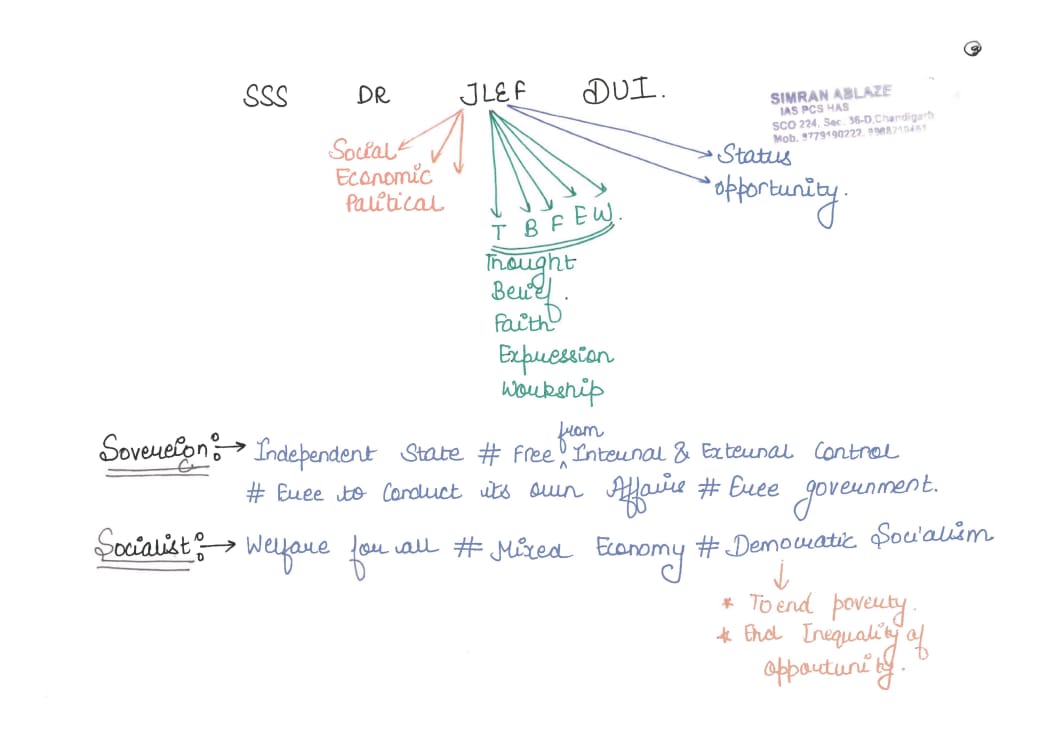 ③
SSS DR JLEF DUI.
SIMRAN ABLAZE
IAS PCS HAS
SCO 224, Sec. 36-D, Chandigarh
Mob. 9779190222,
Social
Economic
Political
Status
opportunity.
T B F E W.
Thought
Belief.
Faith
Expression
Workship
Sovereign: → Independent State # Free from Internal & External Control
# Free to Conduct its own Affairs # Free government.
Socialist: → Welfare for all # Mixed Economy # Democratic Socialism
* To end poverty.
* End Inequality of
opportunity.